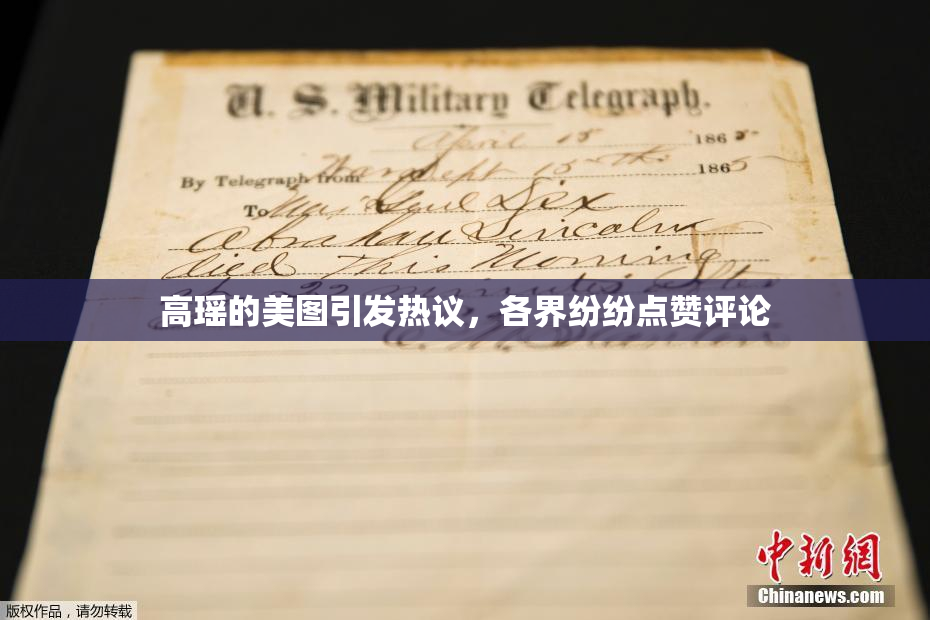 U. S. Military Telegraph.
April 15 1865
By Telegraph from War Dept 15th 1865
To Maj Genl Dix
Abraham Lincoln
died This Morning
at 22 minutes after
高瑶的美图引发热议，各界纷纷点赞评论
中新網
Chinanews.com
版权作品，请勿转载